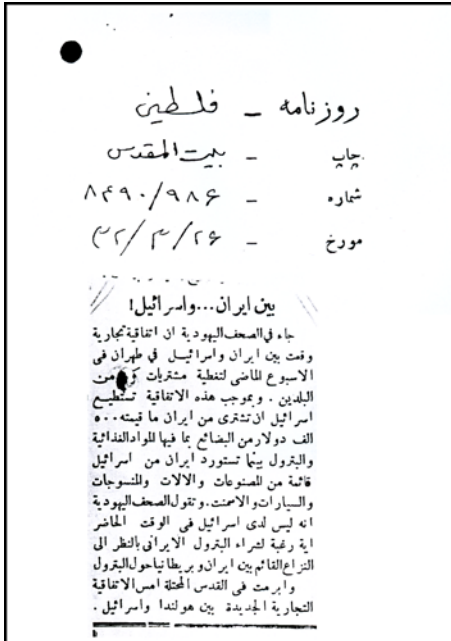 روزنامه - فلسطین
چاپ - بیت المقدس
شماره - ۹۸۶/۸۴۹۰
مورخ - ۳۲/۳/۲۶
بين ايران...واسرائيل!
جاء فى الصحف اليهودية ان اتفاقية تجارية
وقعت بين ايران واسرائيل في طهران فى
الاسبوع الماضى لتغطية مشتريات من
البلدين . وبموجب هذه الاتفاقية تستطيع
اسرائيل ان تشترى من ايران ما قيمته ٥٠٠
الف دولار من البضائع بما فيها المواد الغذائية
والبترول بينما تستورد ايران من اسرائيل
قائمة من المصنوعات والالات والمنسوجات
والسيارات والاسمنت. وتقول الصحف اليهودية
انه ليس لدى اسرائيل فى الوقت الحاضر
اية رغبة لشراء البترول الايرانى بالنظر الى
النزاع القائم بين ايران وبريطانيا حول البترول
وابرمت فى القدس المحتلة امس الاتفاقية
التجارية الجديدة بين هولندا واسرائيل .